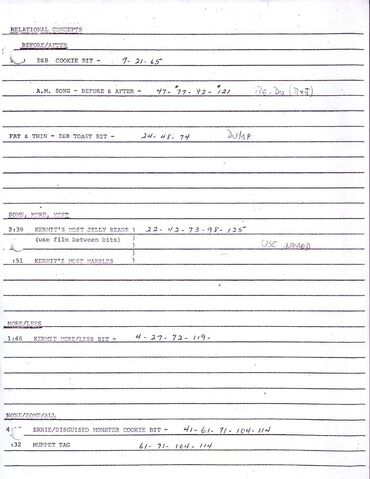 RELATIONAL CONCEPTS
BEFORE/AFTER
E&B COOKIE BIT - 7-21-65
A.M. SONG - BEFORE & AFTER - 47- *77-92- *121 RE-DO
FAT & THIN - E&B TOAST BIT - 24-48-74 DUMP
SOME, MORE, MOST
2:39 KERMIT'S MOST JELLY BEANS ) 22-42-73-98-125
(use film between bits) ) USE
)
:51 KERMIT'S MOST MARBLES )
MORE/LESS
1:46 KERMIT MORE/LESS BIT - 4-27-72-119-
NONE/SOME/ALL
ERNIE/DISGUISED MONSTER COOKIE BIT - 41-61-71-104-114
:32 MUPPET TAG 61-71-104-114